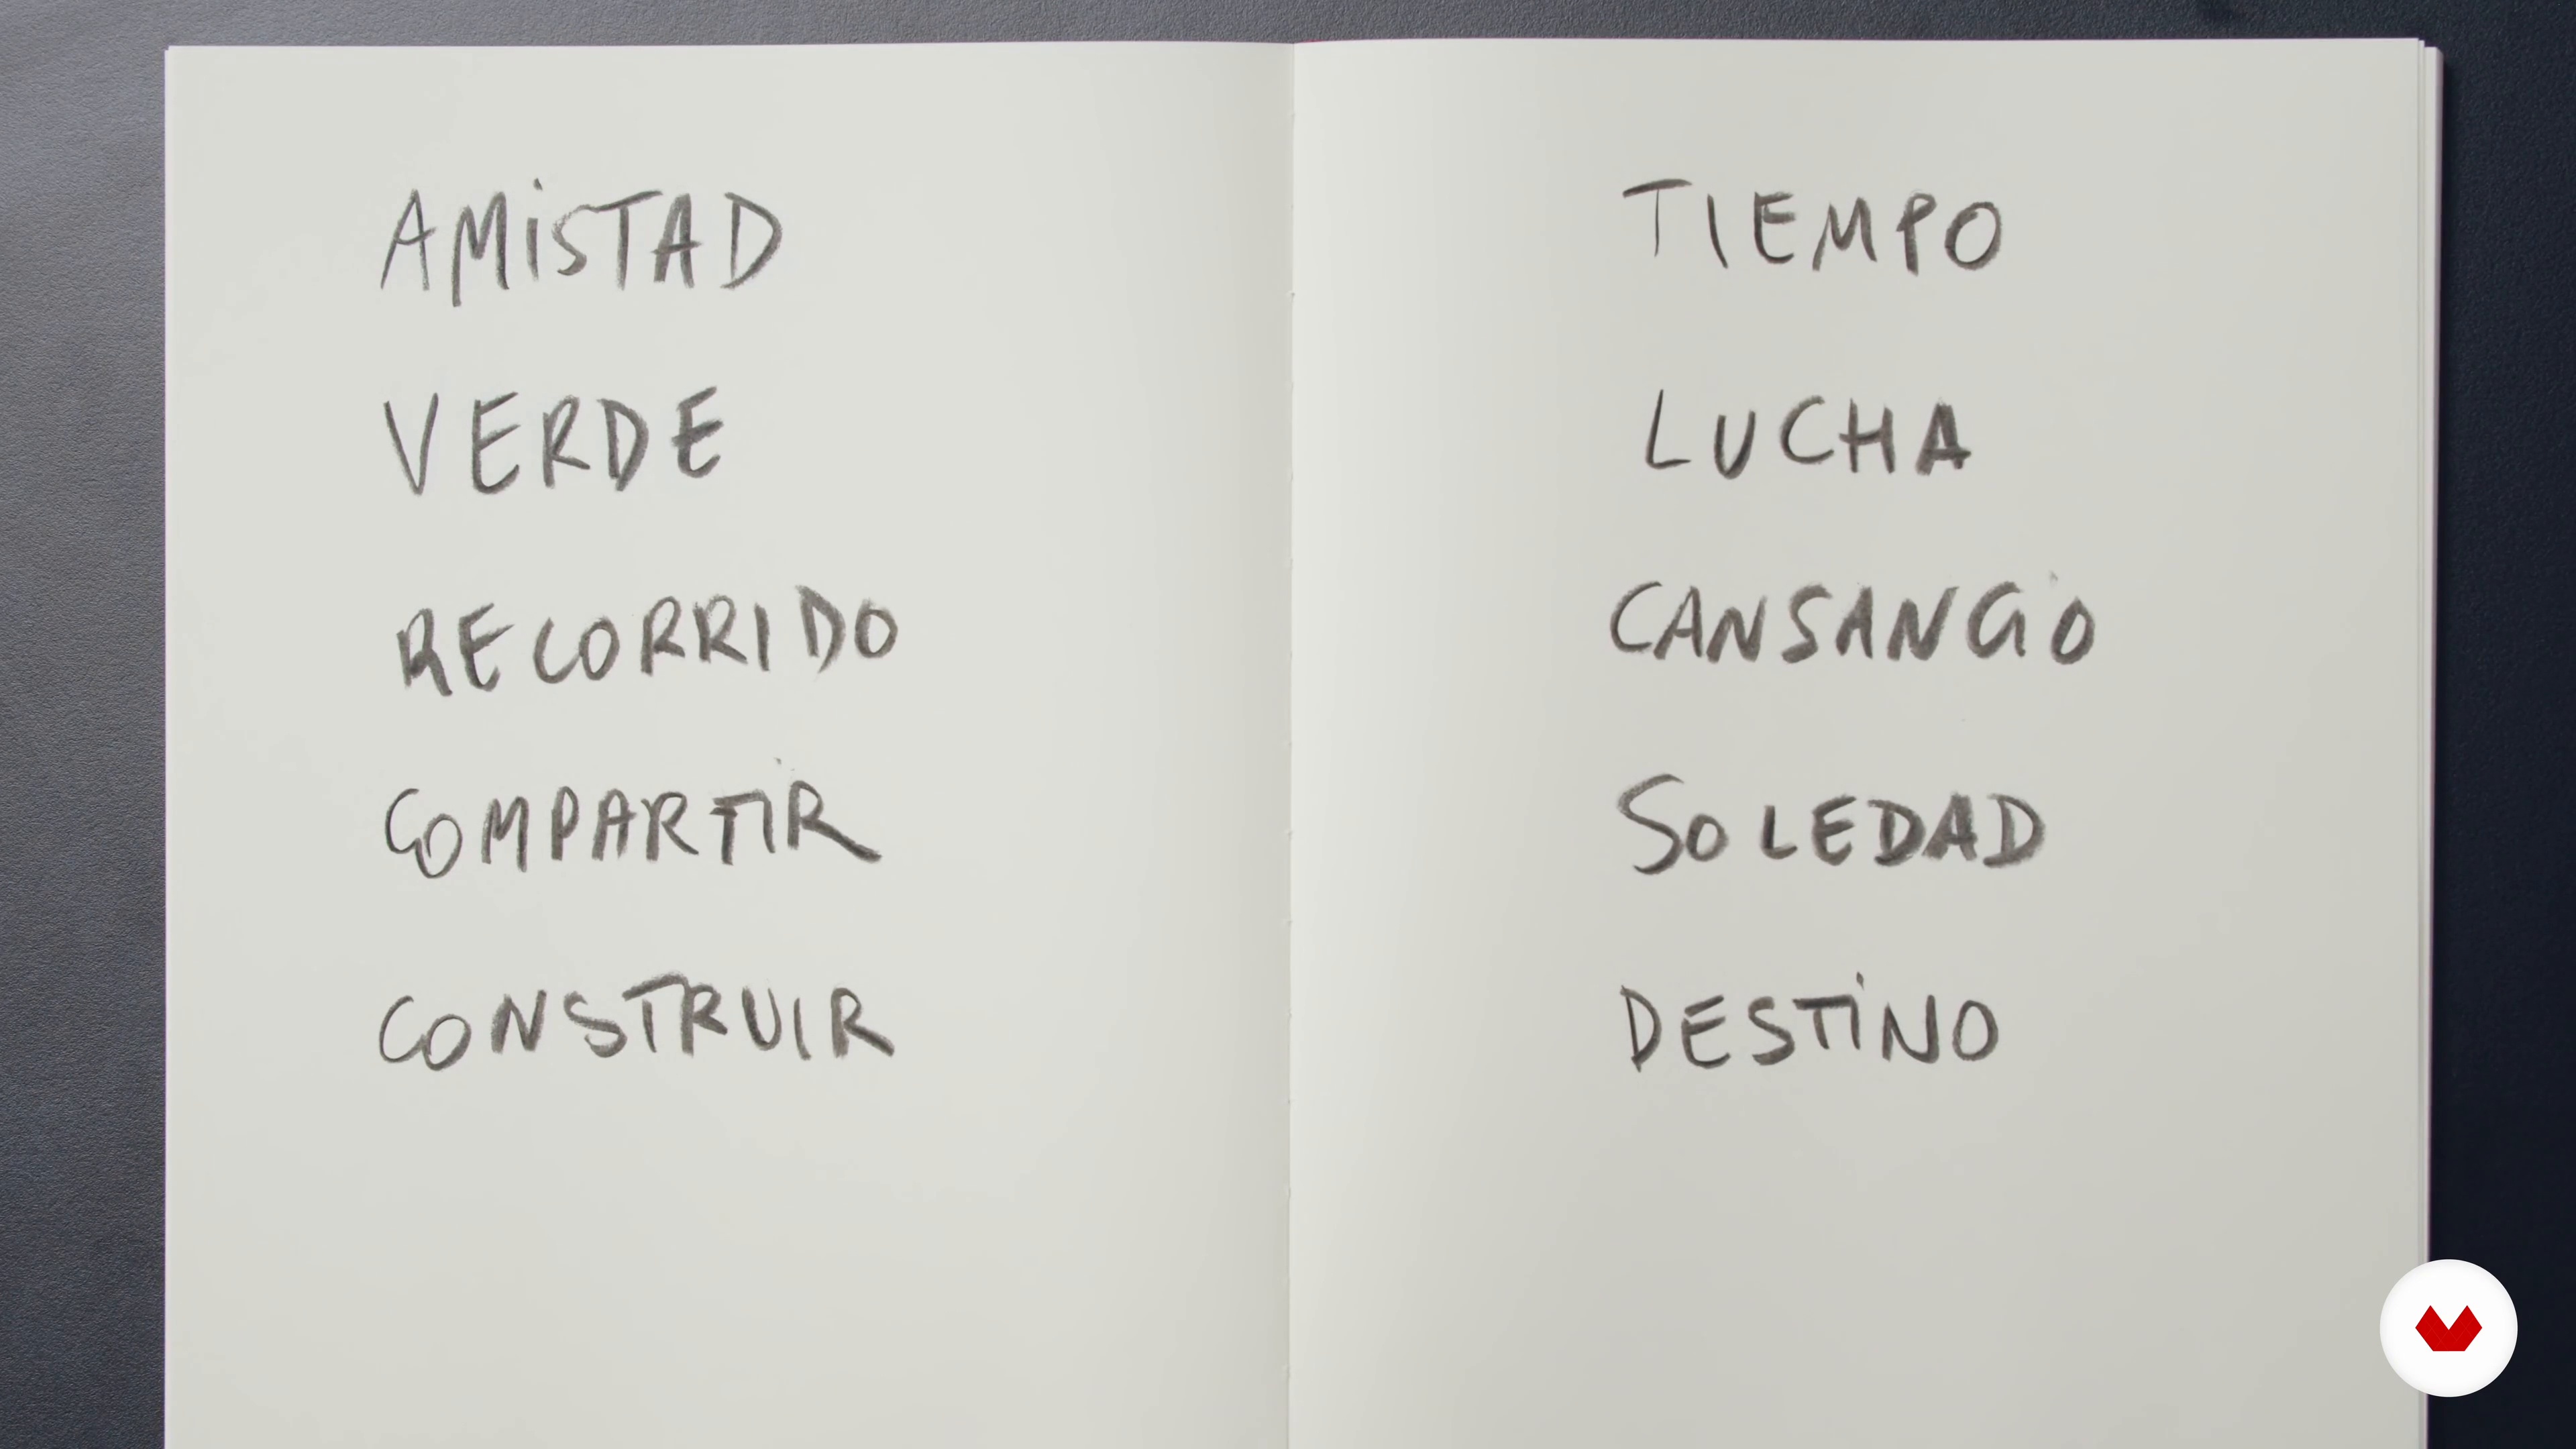 AMISTAD
VERDE
RECORRIDO
COMPARTIR
CONSTRUIR
TIEMPO
LUCHA
CANSANCIO
SOLEDAD
DESTINO